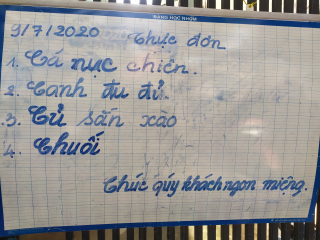 BẢNG HỌC NHÓM
9/7/2020 Thực đơn
1. Cá nục chiên.
2. Canh đu đủ.
3. Củ sắn xào
4. Chuối
Chúc qúy khách ngon miệng.